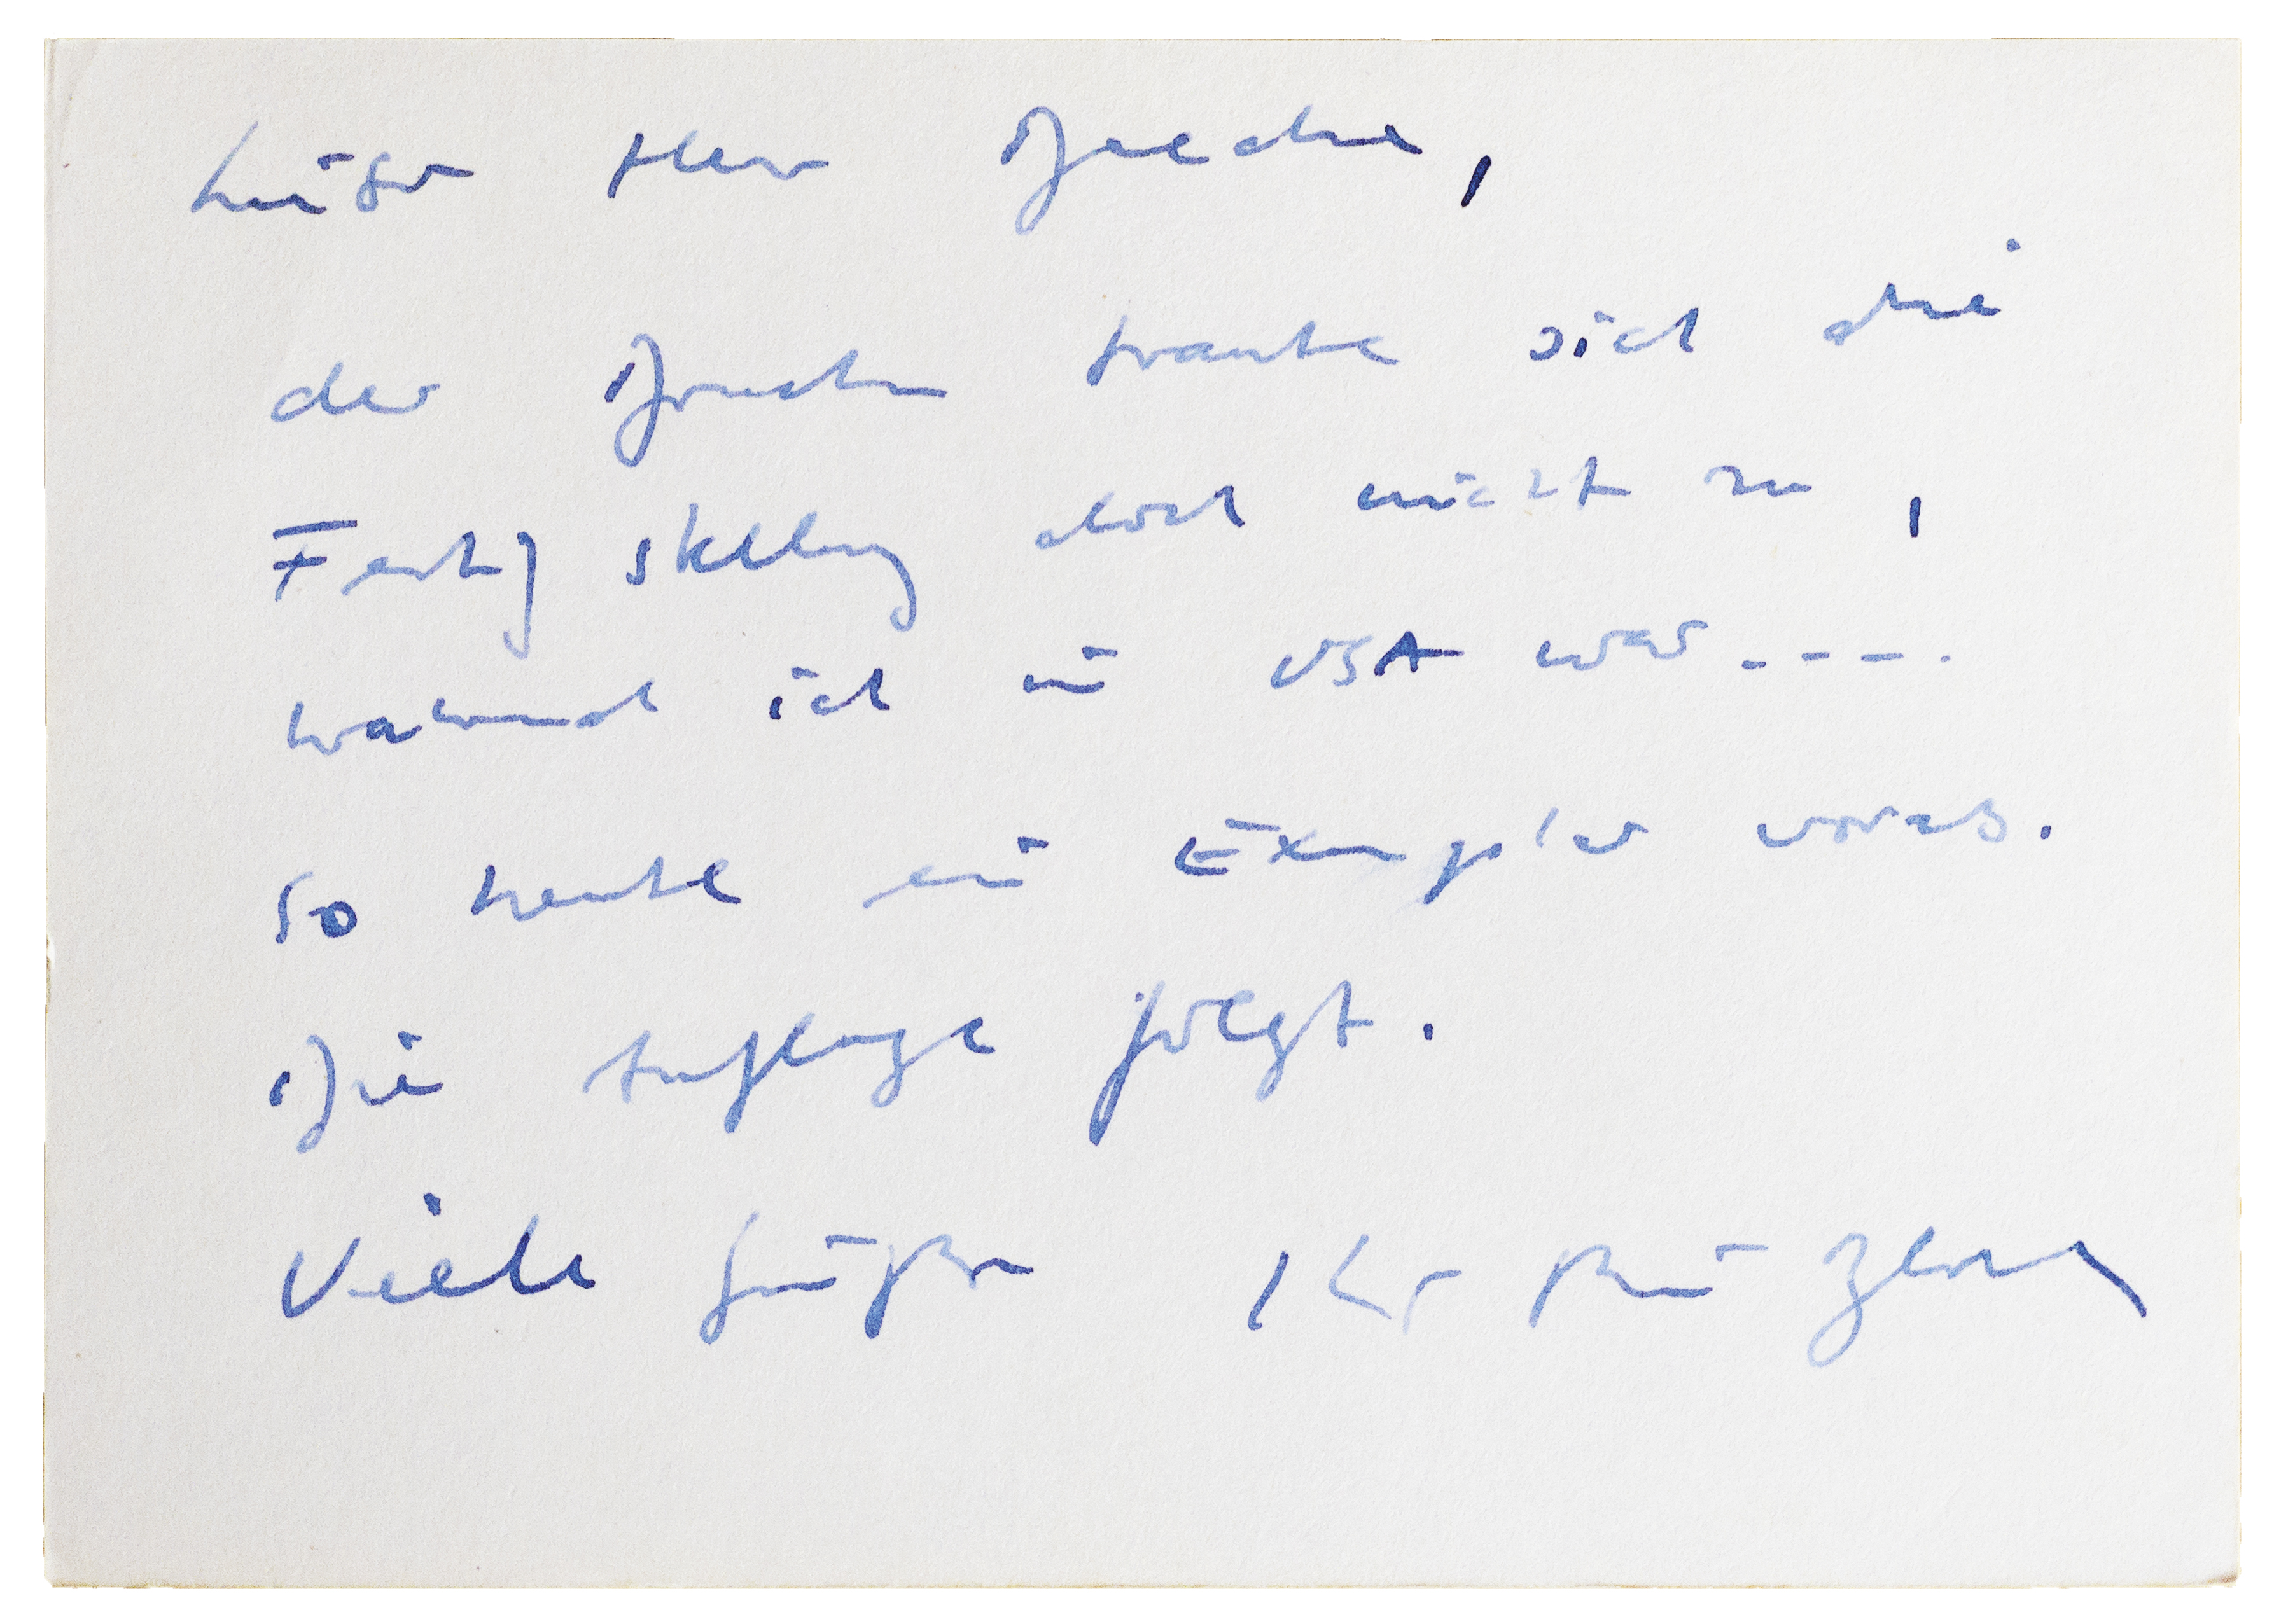 Lieber Herr
der Drucker traute sich die
Fertigstellung doch nicht zu,
während ich in USA war ----.
So heute ein Exemplar voraus.
Die Auflage folgt.
Viele Grüße Ihr